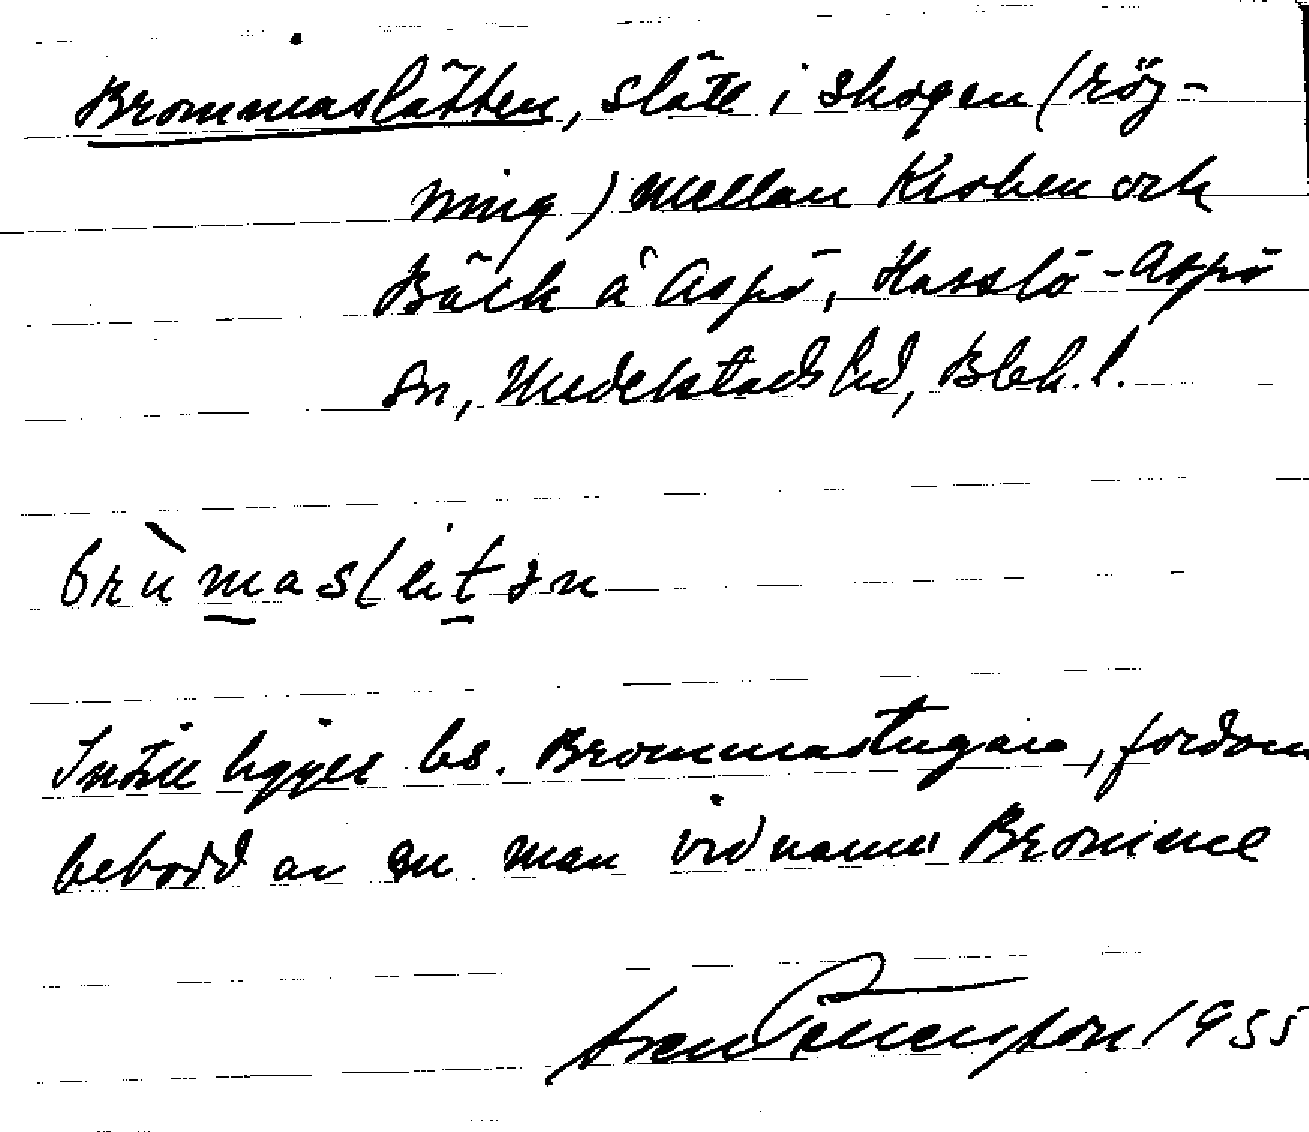 Brommaslätten, slätt i skogen (röj-
ning) mellan Kroken och
Bäck å Aspö, Hasslö-Aspö
sn, Medelstads hd, Blek. l.
brùmaslätən
Intill ligger bs. Brommastugan, fordom
bebodd av en man vid namn Bromme
Sven Benson 1955